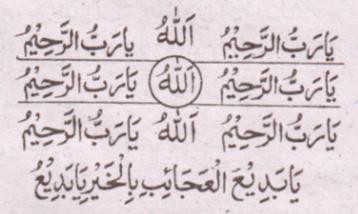 يَارَبُّ الرَّحِيْمُ اَللّٰهُ يَارَبُّ الرَّحِيْمُ
يَارَبُّ الرَّحِيْمُ اَللّٰهُ يَارَبُّ الرَّحِيْمُ
يَارَبُّ الرَّحِيْمُ اَللّٰهُ يَارَبُّ الرَّحِيْمُ
يَابَدِيْعَ الْعَجَائِبِ بِالْخَيْرِ يَابَدِيْعُ